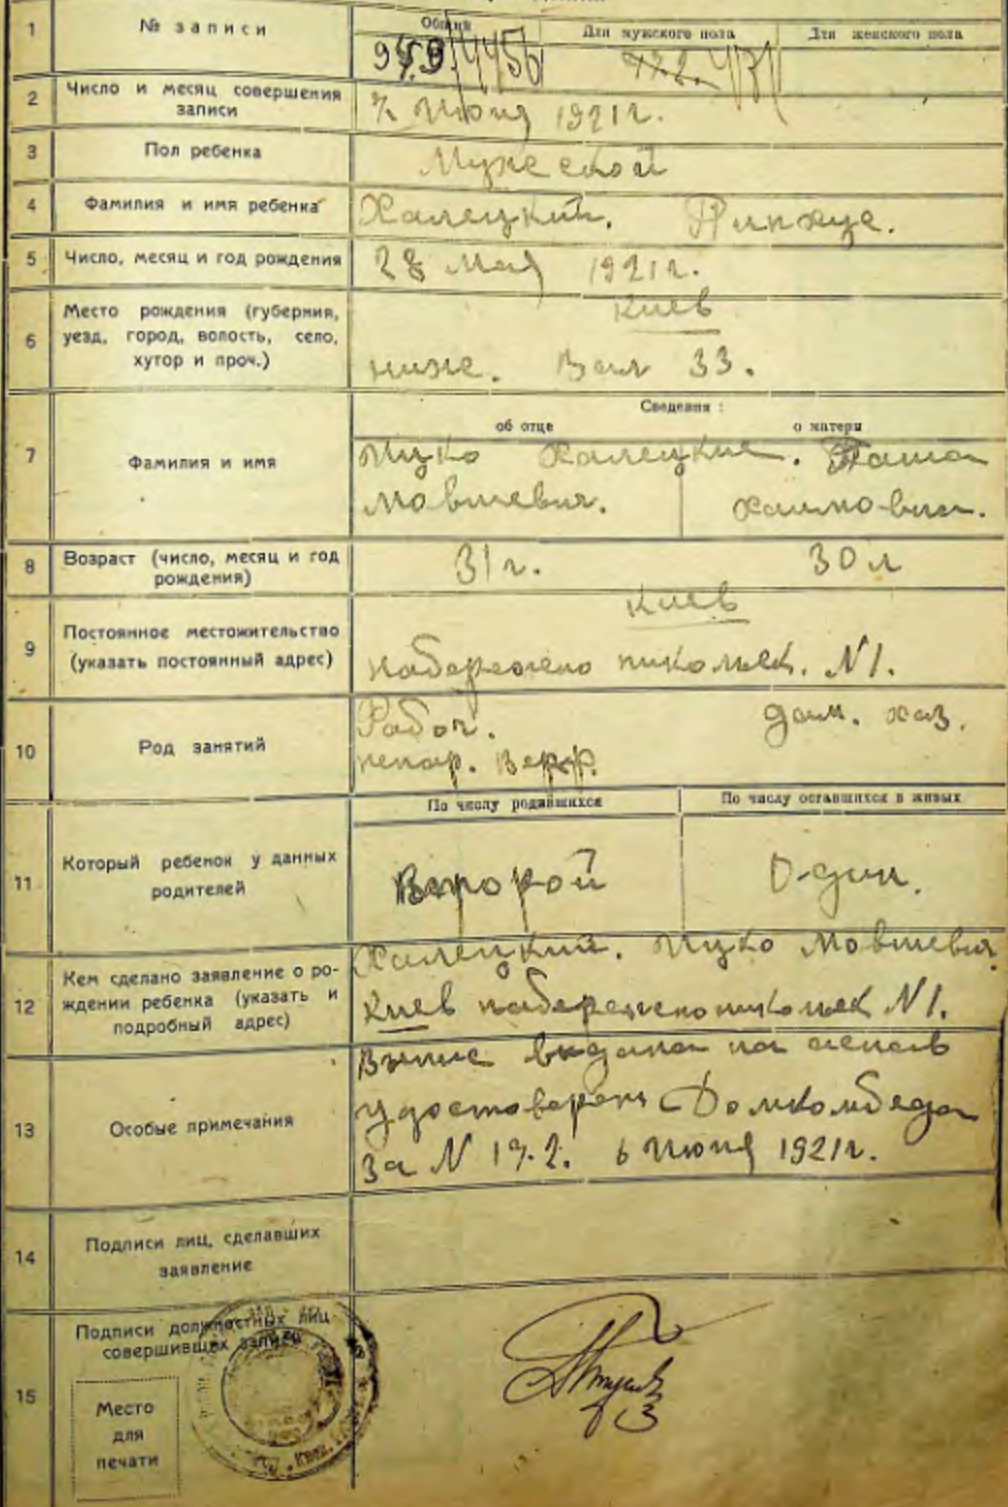 1
№ записи
Общий
Для мужского пола
Для женского пола
2
Число и месяц совершения
записи
Июня 1921 г.
3
Пол ребенка
Мужеской
4
Фамилия и имя ребенка
Халецкий. Пинхус.
5
Число, месяц и год рождения
28 Мая 1921 г.
6
Место рождения (губерния,
уезд, город, волость, село,
хутор и проч.)
Киев
ниже. Вал 33.
7
Фамилия и имя
Сведения:
об отце
о матери
Ицко Халецкие.
Мовшевич.
Хаимо-вна.
8
Возраст (число, месяц и год
рождения)
31 г.
30 л
9
Постоянное местожительство
(указать постоянный адрес)
Киев
набережно никольск. №1.
10
Род занятий
Рабоч.
дом. хоз.
11
Который ребенок у данных
родителей
По числу родившихся
По числу оставшихся в живых
второй
О-дин.
12
Кем сделано заявление о ро-
ждении ребенка (указать и
подробный адрес)
Халецкий. Ицко Мовшевич
Киев набережноникольск №1.
13
Особые примечания
удостоверен Домкомбеда
За № 6 Июня 1921 г.
14
Подписи лиц, сделавших
заявление
15
Подписи должностных лиц
совершивших записи
Место
для
печати